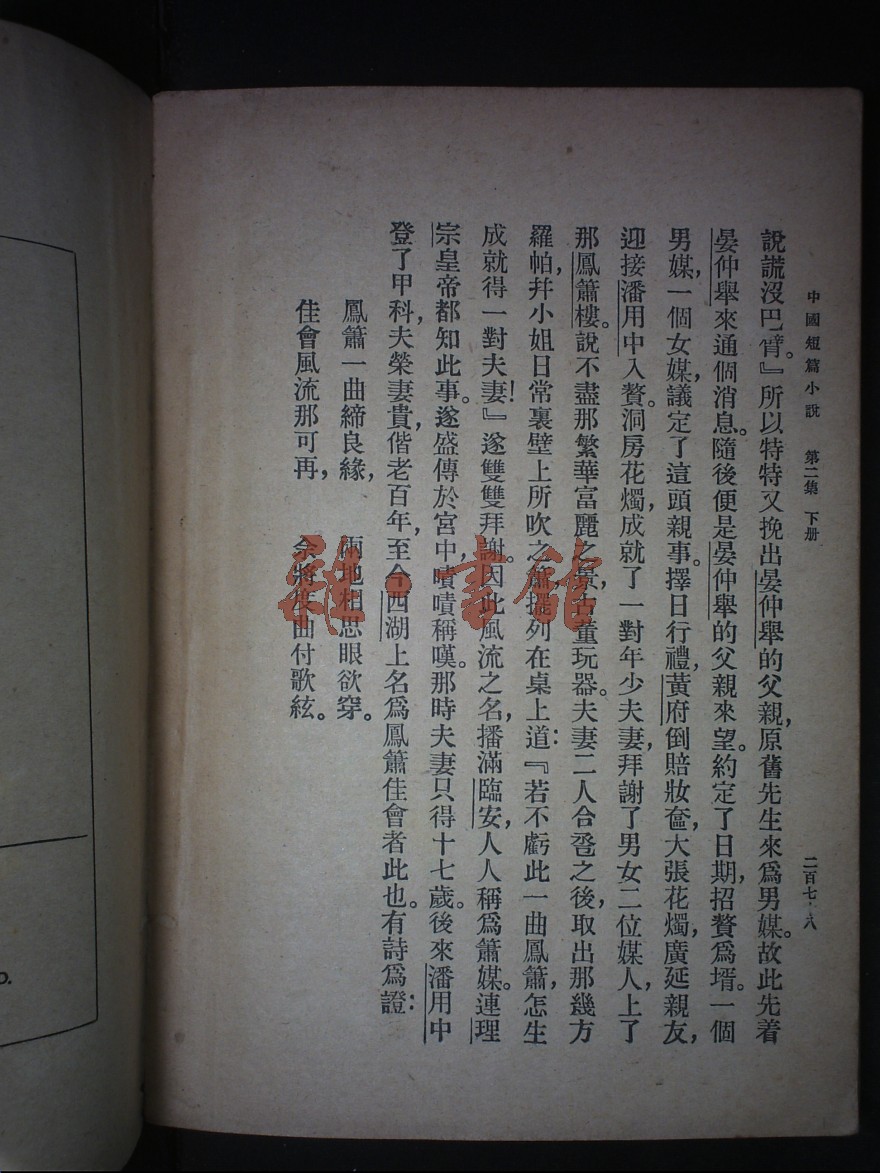 中國短篇小說　第二集　下册
二百七·八
說謊沒巴臂。』所以特特又挽出晏仲舉的父親，原舊先生來爲男媒。故此先着
晏仲舉來通個消息。隨後便是晏仲舉的父親來望。約定了日期，招贅爲壻。一個
男媒，一個女媒，議定了這頭親事。擇日行禮，黃府倒賠妝奩，大張花燭，廣延親友，
迎接潘用中入贅。洞房花燭，成就了一對年少夫妻，拜謝了男女二位媒人，上了
那鳳簫樓。說不盡那繁華富麗之景，古董玩器。夫妻二人合卺之後，取出那幾方
羅帕，幷小姐日常裏壁上所吹之簫，擺列在桌上道：『若不虧此一曲鳳簫，怎生
成就得一對夫妻！』遂雙雙拜謝。因此風流之名，播滿臨安，人人稱爲簫媒。連理
宗皇帝都知此事。遂盛傳於宮中，嘖嘖稱嘆。那時夫妻只得十七歲。後來潘用中
登了甲科，夫榮妻貴，偕老百年，至今西湖上名爲鳳簫佳會者此也。有詩爲證：
鳳簫一曲締良緣，　兩地相思眼欲穿。
佳會風流那可再，　余將度曲付歌絃。
雜·書館